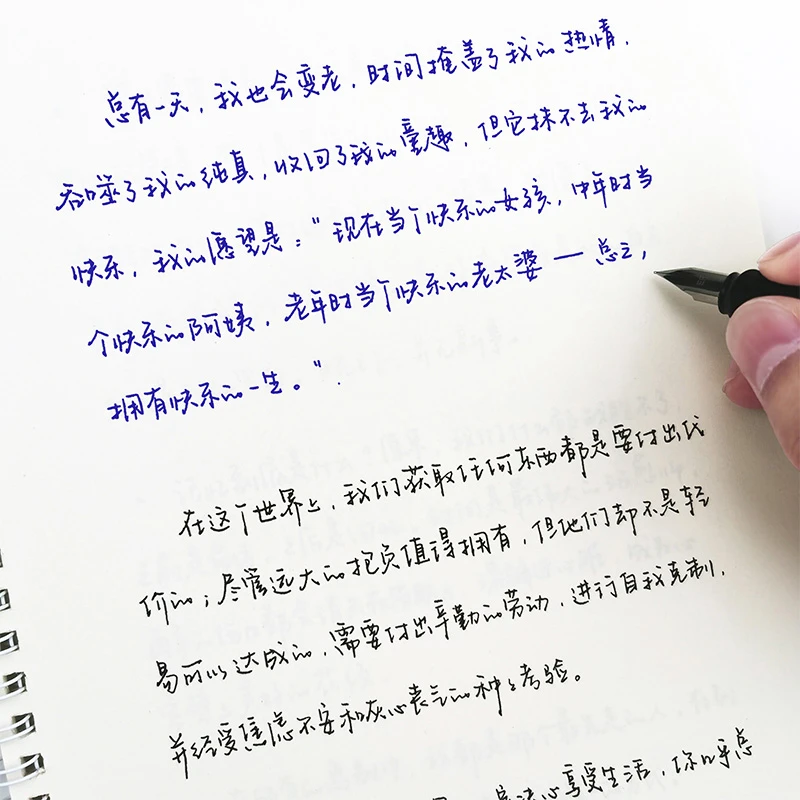 总有一天，我也会变老，时间掩盖了我的热情，
吞噬了我的纯真，收回了我的童趣，但它抹不去我的
快乐，我的愿望是：“现在当个快乐的女孩，中年时当
个快乐的阿姨，老年时当个快乐的老太婆——总之，
拥有快乐的一生。”
在这个世界上，我们获取任何东西都是要付出代
价的；尽管远大的抱负值得拥有，但他们却不是轻
易可以达成的，需要付出辛勤的劳动，进行自我克制，
并经受焦虑不安和灰心丧气的种种考验。
心享受生活，你似乎总